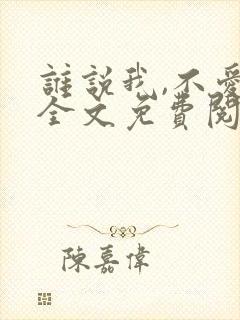 誰說我,不愛
全文免費閱
陳嘉偉